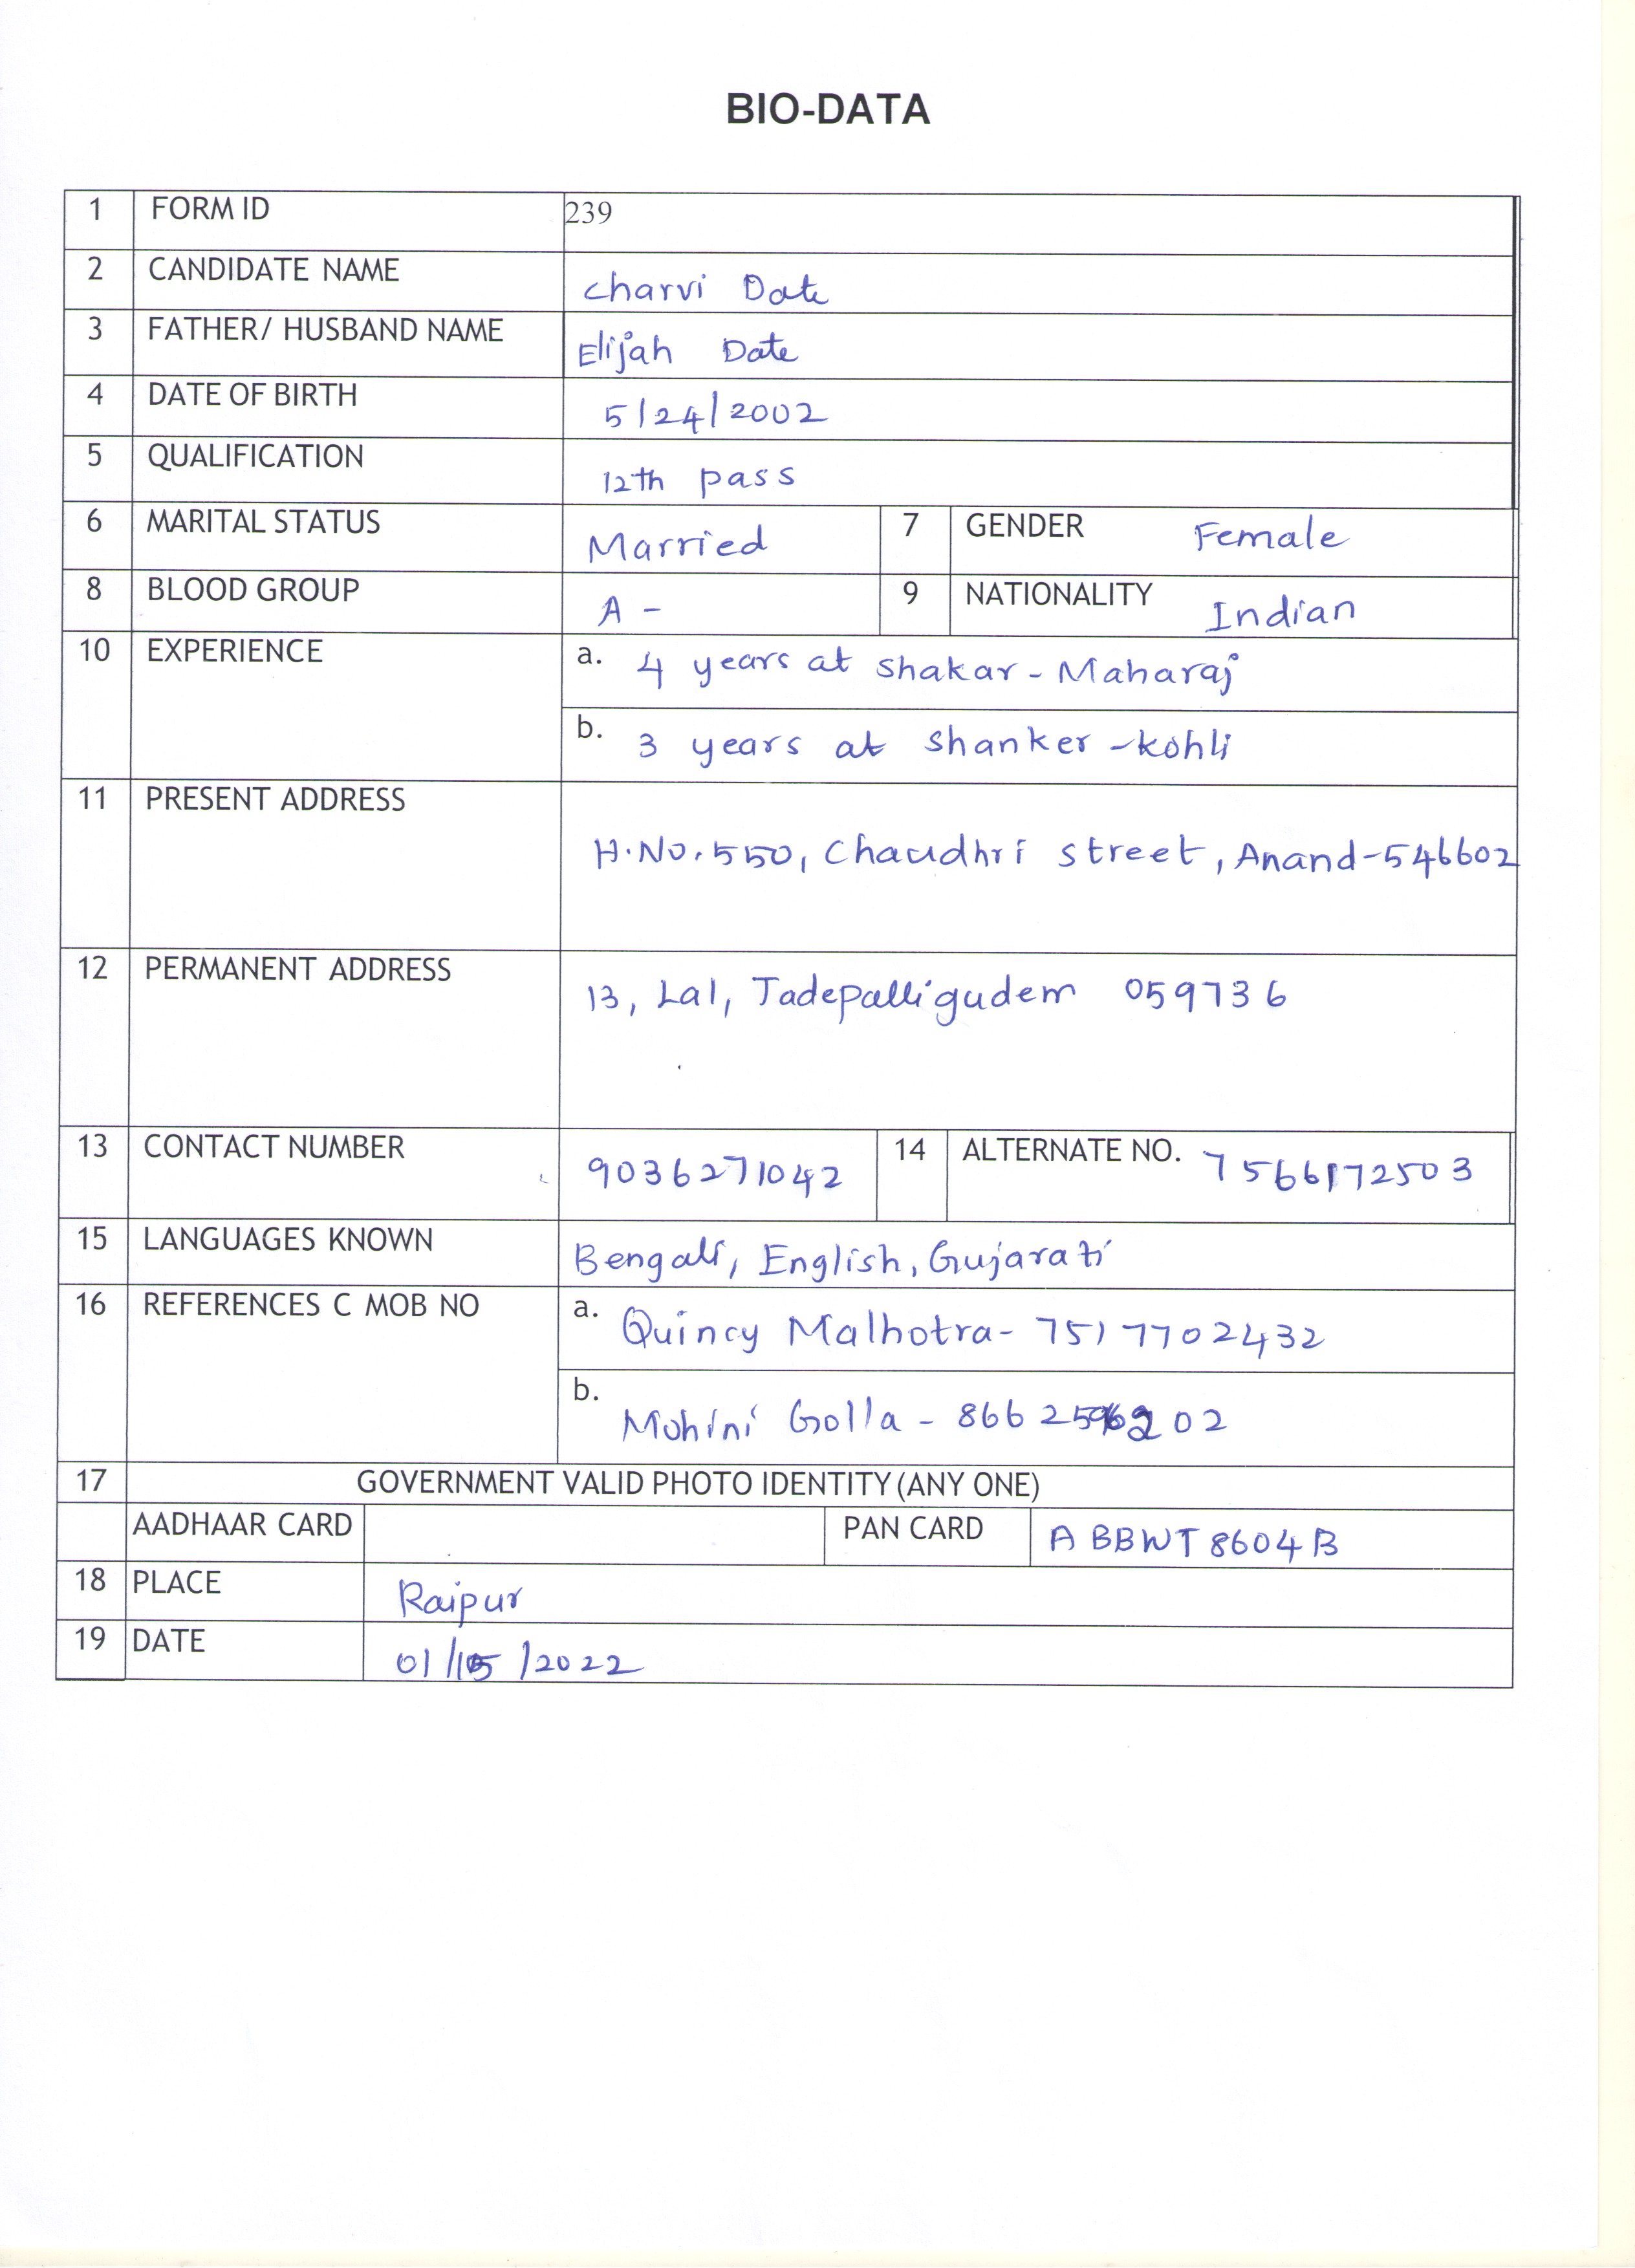 BIO-DATA
1 FORM ID 239
2 CANDIDATE NAME Charvi Date
3 FATHER/ HUSBAND NAME Elijah Date
4 DATE OF BIRTH 5/24/2002
5 QUALIFICATION 12th pass
6 MARITAL STATUS Married 7 GENDER Female
8 BLOOD GROUP A - 9 NATIONALITY Indian
10 EXPERIENCE a. 4 years at Shakar-Maharaj
b. 3 years at Shanker-Kohli
11 PRESENT ADDRESS
H.No.550, Chaudhri Street, Anand-546602
12 PERMANENT ADDRESS 13, Lal, Tadepalligudem 059736
13 CONTACT NUMBER 9036271042 14 ALTERNATE NO. 7566172503
15 LANGUAGES KNOWN Bengali, English, Gujarati
16 REFERENCES C MOB NO a. Quincy Malhotra- 7517702432
b. Mohini Golla -
17 GOVERNMENT VALID PHOTO IDENTITY (ANY ONE)
AADHAAR CARD PAN CARD ABBWT8604B
18 PLACE Raipur
19 DATE 01/15/2022